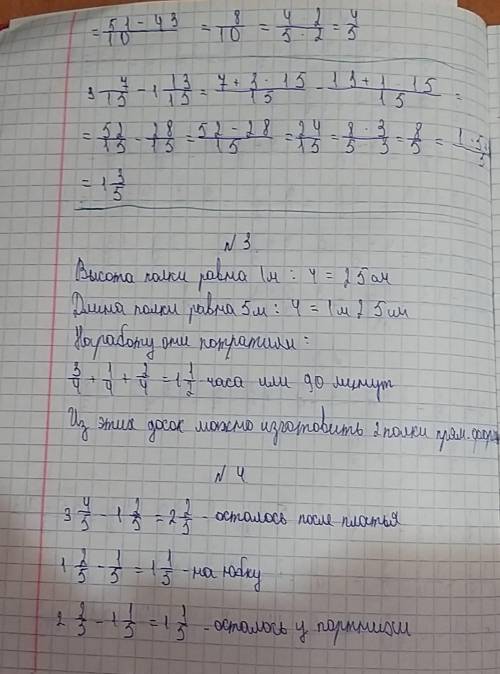 = (51 - 43)/10 = 8/10 = (4 · 2)/(5 · 2) = 4/5
3 7/15 - 1 13/15 = (7 + 3 · 15)/15 - (13 + 1 · 15)/15 =
= 52/15 - 28/15 = (52 - 28)/15 = 24/15 = (8 · 3)/(5 · 3) = 8/5 =
= 1 3/5
№ 3
Высота полки равна 1м : 4 = 25 см
Длина полки равна 5м : 4 = 1м 25 см
На работу они потратили:
3/4 + 1/4 + 2/4 = 1 1/2 часа или 90 минут
Из этих досок можно изготовить 2 полки прям.
№ 4
3 4/5 - 1 2/5 = 2 2/5 - осталось после платья
1 2/5 - 1/5 = 1 1/5 - на юбку
2 2/5 - 1 1/5 = 1 1/5 - осталось у портнихи